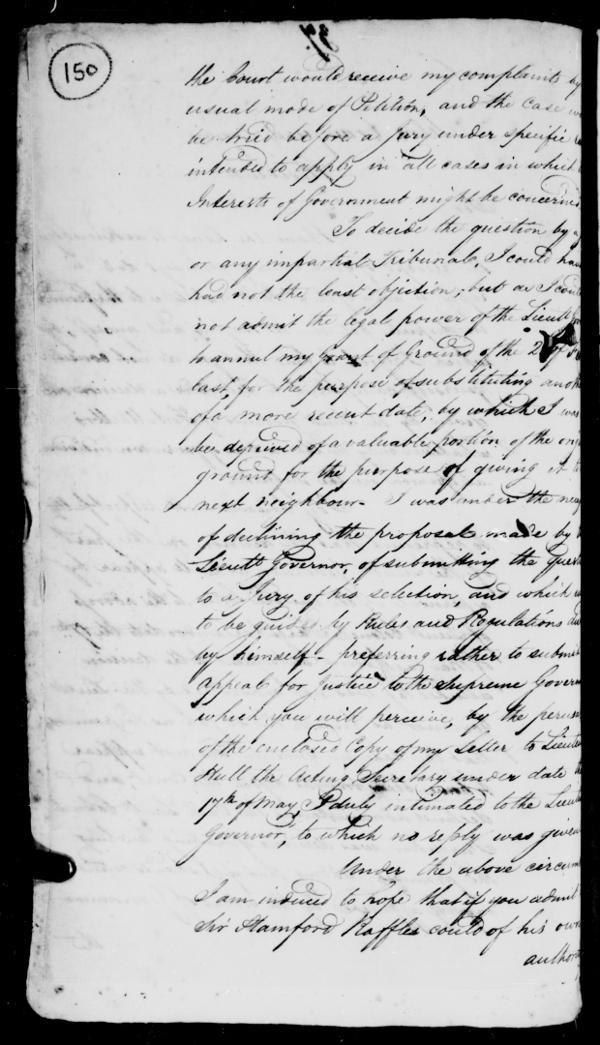 150
the Court would receive my complaints by
usual mode of Petition, and the case
be tried before a Jury under specific
intended to apply in all cases in which
Interests of Government might be concerned
To decide the question by
or any impartial Tribunal, I could have
had not the least objection; but as I could
not admit the legal power of the Lieut Gov
to annul my Grant of Ground of the 2 of
last, for the purpose of substituting anoth
of a more recent date, by which I was
be deprived of a valuable portion of the
ground for the purpose of giving it to
next neighbour - I was under the nece
of declining the proposal made by
Lieutt Governor, of submitting the Quest
to a Jury of his selection, and which
to be guided by Rules and Regulations
by himself - preferring rather to submit
appeal for Justice to the Supreme Govern
which you will perceive, by the perus
of the enclosed Copy of my Letter to Lieute
Hull the Acting Secretary under date
17th of May, I duly intimated to the Lieut
Governor, to which no reply was given
Under the above circum
I am induced to hope that if you admit
Sir Stamford Raffles could of his own
author